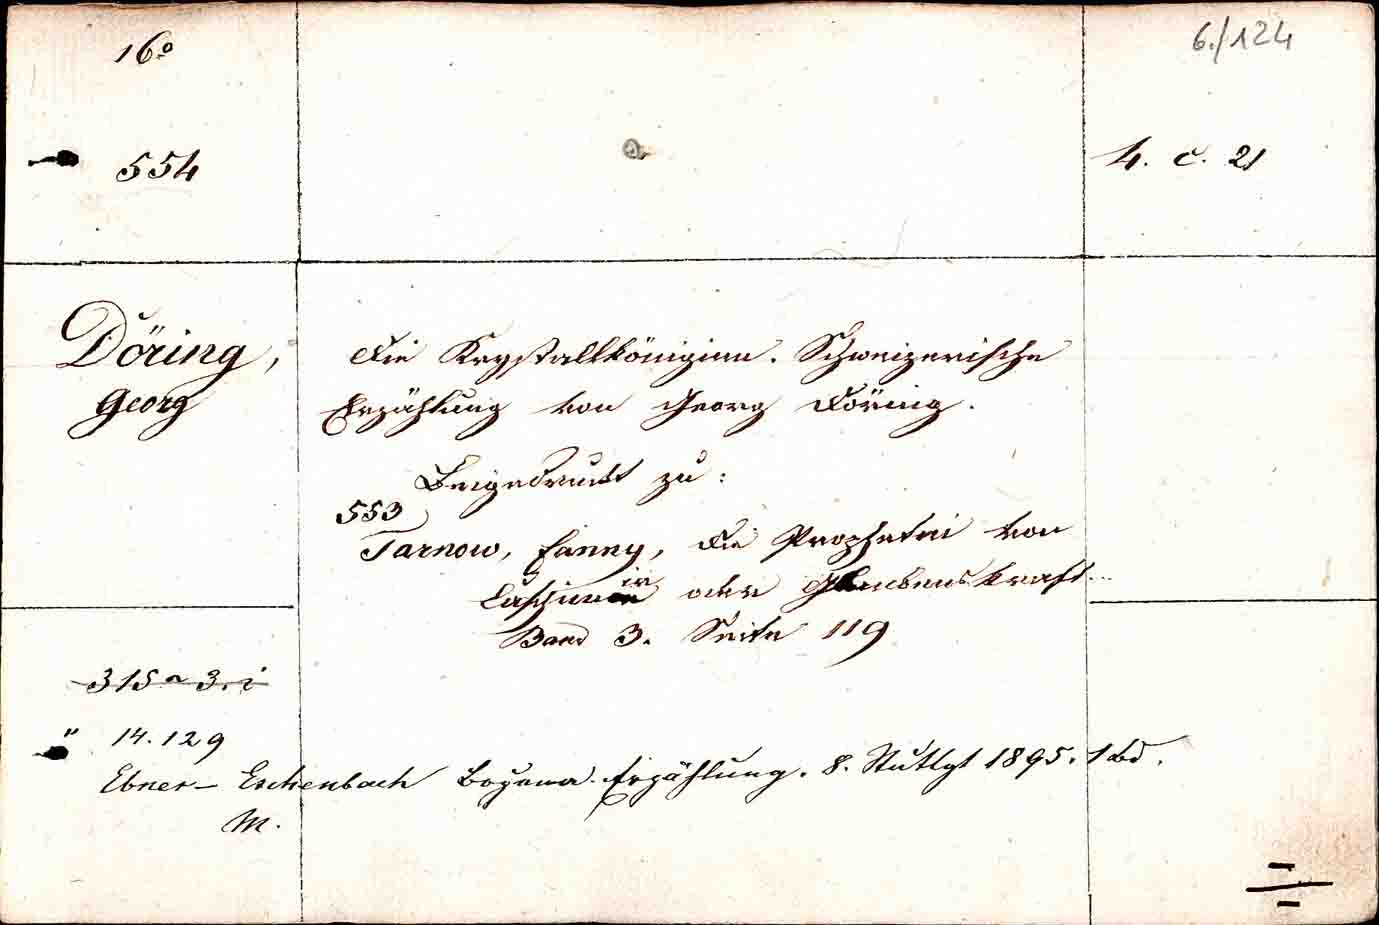 16º
6./124
554
4. C. 21
Döring,
Georg
Die Krystallköniginn. Schweizerische
Erzählung von Georg Döring.
Beigedruckt zu:
553
Tarnow, Fanny, die Prophetin von
oder Glaubenskraft
Band 3. Seite 119
315 a 3. i
" 14.129
Ebner-Eschenbach Bozena. Erzählung. 8. Stuttgt 1895. 1 Bd.
M.